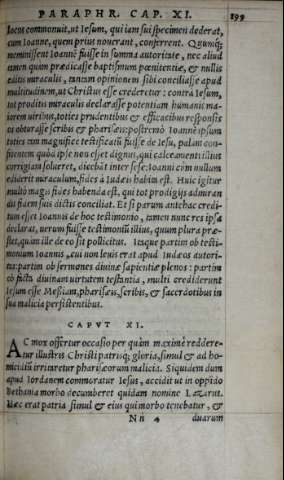 PARAPHR. CAP. XI. 199
locus commonuit, ut Iesum, qui iam sui specimen dederat,
cum Ioanne, quem prius nouerant, conferrent. Quumq́;
meminissent Ioannē fuisse in summa autoritate, nec aliud
tamen quàm prædicasse baptismum pœnitentiæ, & nullis
æditis miraculis, tantam opinionem sibi conciliasse apud
multitudinem, ut Christus esse crederetur: contrà Iesum,
tot proditis miraculis declarasse potentiam humanis ma-
iorem uiribus, toties prudentibus & efficacibus responsis
os obturasse scribis & pharisæis: postremò Ioannē ipsum
toties tam magnifice testificatū fuisse de Iesu, palàm con-
fitentem quòd ipse non esset dignus, qui calceamenti illius
corrigiam solueret, dicebāt inter sese: Ioanni cùm nullum
ediderit miraculum, fides à Iudæis habita est. Huic igitur
multò magis fides habenda est, qui tot prodigijs admiran
dis fidem suis dictis conciliat. Et si parum antehac credi-
tum esset Ioannis de hoc testimonio, tamen nunc res ipsa
declarat, uerum fuisse testimoniū illius, quum plura præ-
stet, quàm ille de eo sit pollicitus. Itaque partim ob testi-
monium Ioannis, cui non leuis erat apud Iudæos autori-
tas: partim ob sermones diuinæ sapientiæ plenos: partim
ob facta diuinam uirtutem testantia, multi crediderunt
Iesum esse Messiam, pharisæis, scribis, & sacerdotibus in
sua malicia persistentibus.
CAPVT XI.
AC mox offertur occasio per quàm maximè reddere-
tur illustris Christi patrisq́; gloria, simul & ad ho-
micidiū irritaretur pharisæorum malicia. Siquidem dum
apud Iordanem commoratur Iesus, accidit ut in oppido
Bethania morbo decumberet quidam nomine Lazarus.
Hæc erat patria simul & eius qui morbo tenebatur, &
Nn 4 duarum